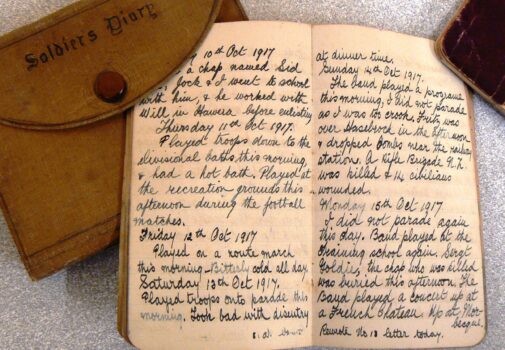 Soldiers Diary
10th Oct 1917
a chap named Sid
Lock & I went to school
with him, & he worked with
Will in Hawera before enlisting
Thursday 11th Oct 1917.
Played troops down to the
divisional baths this morning
& had a hot bath. Played at
the recreation grounds this
afternoon during the football
matches.
Friday 12th Oct 1917
Played on a route march
this morning. Bitterly cold all day.
Saturday 13th Oct 1917.
Played troops onto parade this
morning. Took bad with dysentry
at dinner time.
Sunday 14th Oct 1917.
The band played a programe
this morning, I did not parade
as I was too crook. Fritz was
over Hasebrock in the afternoon
& dropped bombs near the railway
station. A Rifle Brigade N.Z.
was killed & 14 civilians
wounded.
Monday 15th Oct 1917
I did not parade again
this day. Band played at the
training school again. Sergt
Goldie, the chap who was killed
was buried this afternoon. The
Band played a concert up at
a French Chateau. Up at Mor
becque.
No 18 letter today.